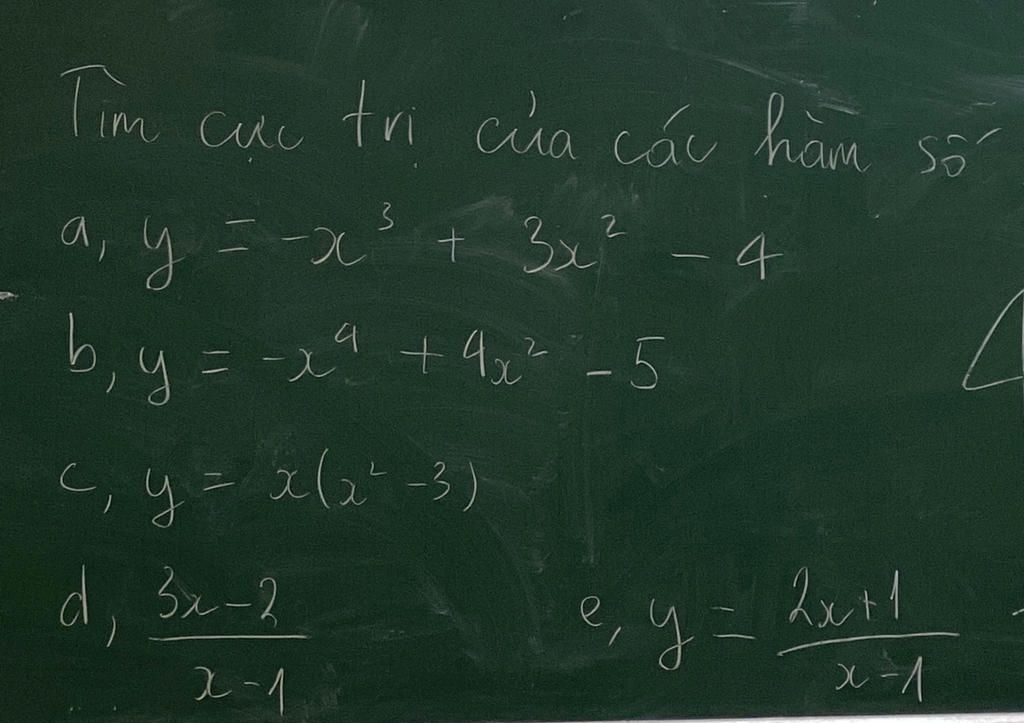 Tìm cực trị của các hàm số
a, y = -x³ + 3x² - 4
b, y = -x⁴ + 4x² - 5
c, y = x(x² - 3)
d, (3x-2)/(x-1)  e, y = (2x+1)/(x-1)